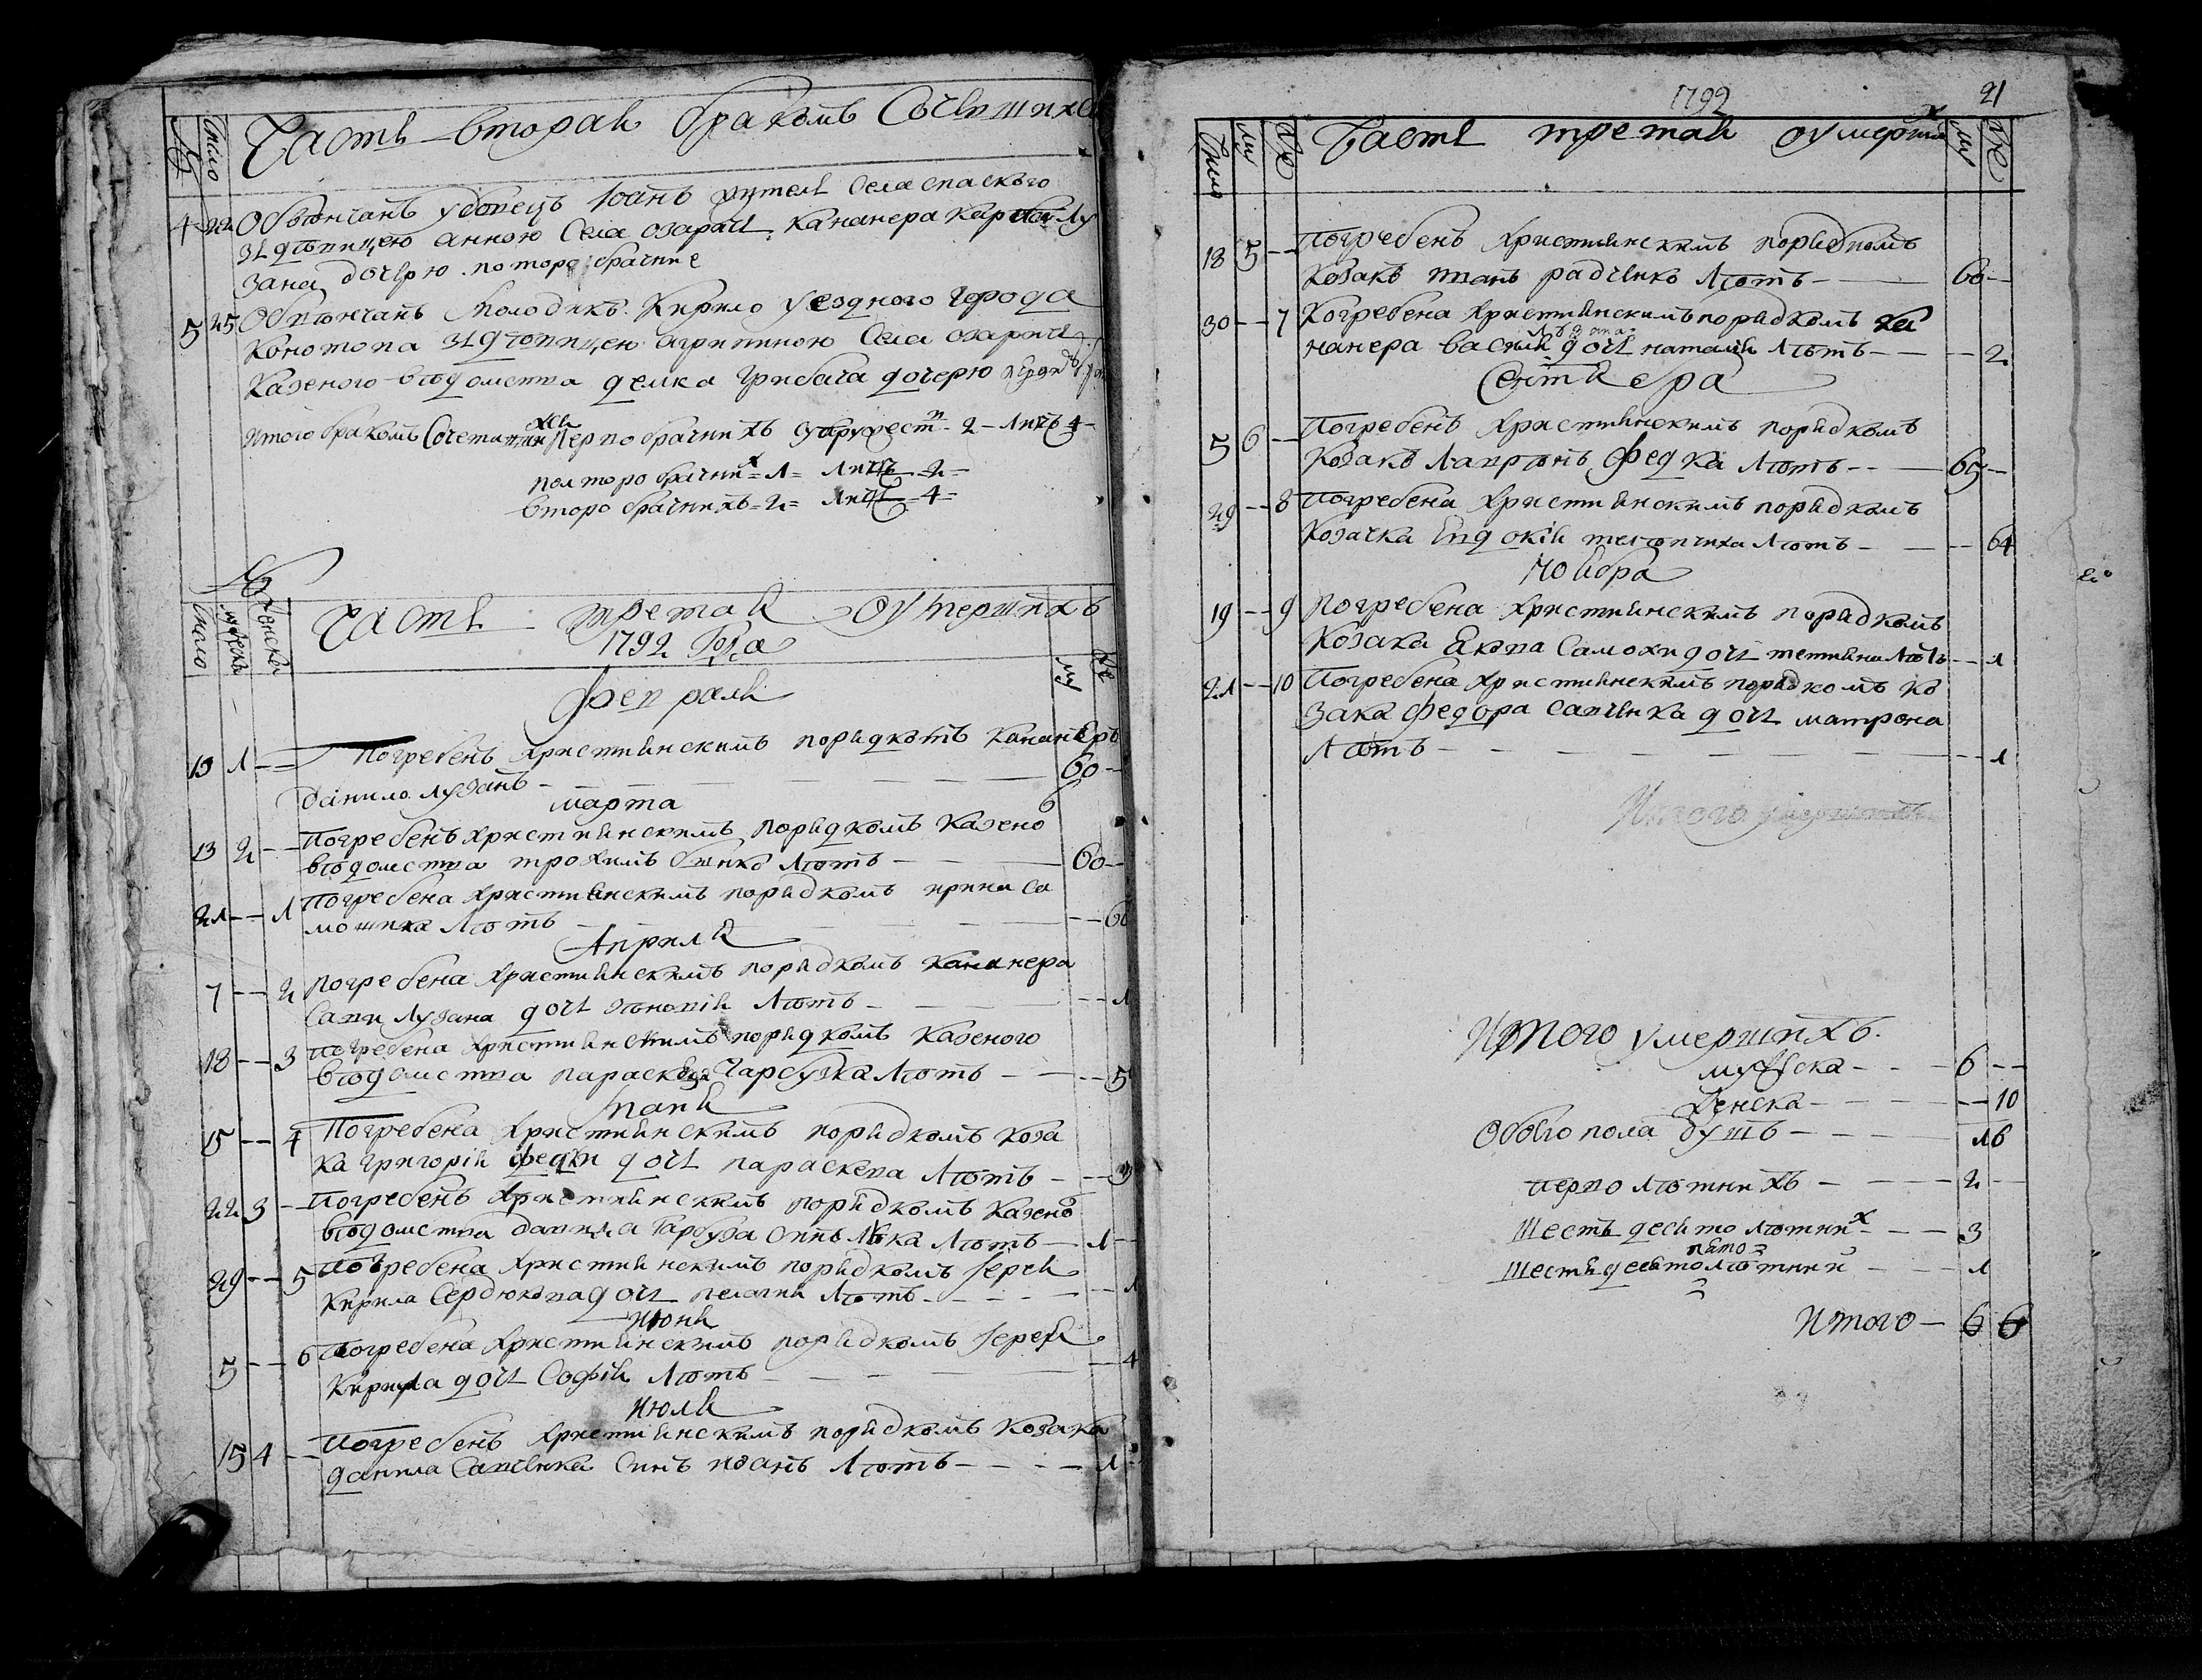 Часть вторая бракомъ Сочетшихся
№ Число
4 22 Обвѣнчанъ удовецъ Іоанъ житель Села спаского
зъ дѣвицею анною Села озаричъ канонера Лу
зана дочерю полторобрачние
5 25 Обвѣнчанъ молодикъ Кирило уездного города
Конотопа зъ дѣвицею агрипиною Села озаричъ
Казеного вѣдомства демка Грибача дочерю
Итого бракомъ Сочетавшихся Первобрачнихъ супружест 2 Лицъ 4
полторобрачних 1 Лицъ 2
второбрачнихъ 2 Лицъ 4
Число мужеска женска
Часть третая Оумершихъ
1792 Года
му же
Февраля
13 1 Погребенъ Християнскимъ порядкомъ Канонеръ
данило лузанъ 60
марта
13 2 Погребенъ християнскимъ порядкомъ Казено
вѣдомства трохимъ Лѣтъ 60
21 1 Погребена християнскимъ порядкомъ ирина Са
мошиха Лѣтъ 60
Априля
7 2 Погребена Християнскимъ порядкомъ Канонера
Савы Лузана дочь Лѣтъ 1
18 3 Погребена християнскимъ порядкомъ Казеного
вѣдомства параскева Гарбузка Лѣтъ 5
маия
15 4 Погребена Християнскимъ порядкомъ Коза
ка Григорія федки дочь параскева Лѣтъ 3
22 3 Погребенъ Християнскимъ порядкомъ Казено
вѣдомства данила Гарбуза синъ Лука Лѣтъ 1
29 5 Погребена Християнскимъ порядкомъ Іерея
Кирила Сердюкова дочь пелагия Лѣтъ 1
июня
5 6 Погребена Християнскимъ порядкомъ Іерея
Кирила дочь Софія Лѣтъ 4
июля
15 4 Погребенъ Християнскимъ порядкомъ Козака
данила Савченка Синъ иванъ Лѣтъ 1
1792
21
Число му же Часть третая оумерших му же
18 5 Погребенъ Християнскимъ порядкомъ
Козакъ иванъ радченко Лѣтъ 60
30 7 Погребена Християнскимъ порядкомъ ка
нанера васили лузана дочь наталия Лѣтъ 2
Сентября
5 6 Погребенъ Християнскимъ порядкомъ
Козакъ Лаврѣнъ федка Лѣтъ 65
29 8 Погребена Християнскимъ порядкомъ
Козачка Евдокія Лѣтъ 64
Ноября
19 9 Погребена Християнскимъ порядкомъ
Козака Якова Самохи дочь тетияна Лѣтъ 1
21 10 Погребена Християнскимъ порядкомъ ко
зака федора савченка дочь матрона
Лѣтъ 1
Итого умершихъ
Итого умершихъ.
мужеска 6
Женска 10
Обоего пола душъ 16
перволѣтнихъ 2
Шестьдесятолѣтних 3
Шестьдесятопятолѣтний 1
Итого 6 6